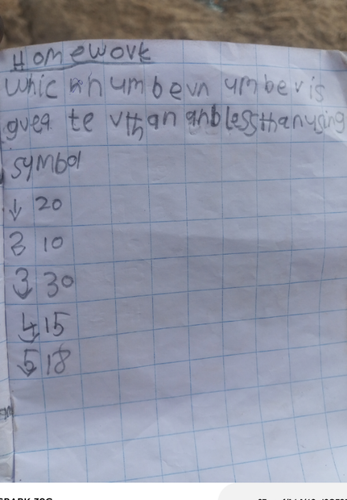 Homework
Whic h number number is
greater than and less than using
symbol
1 20
2 10
3 30
4 15
5 18